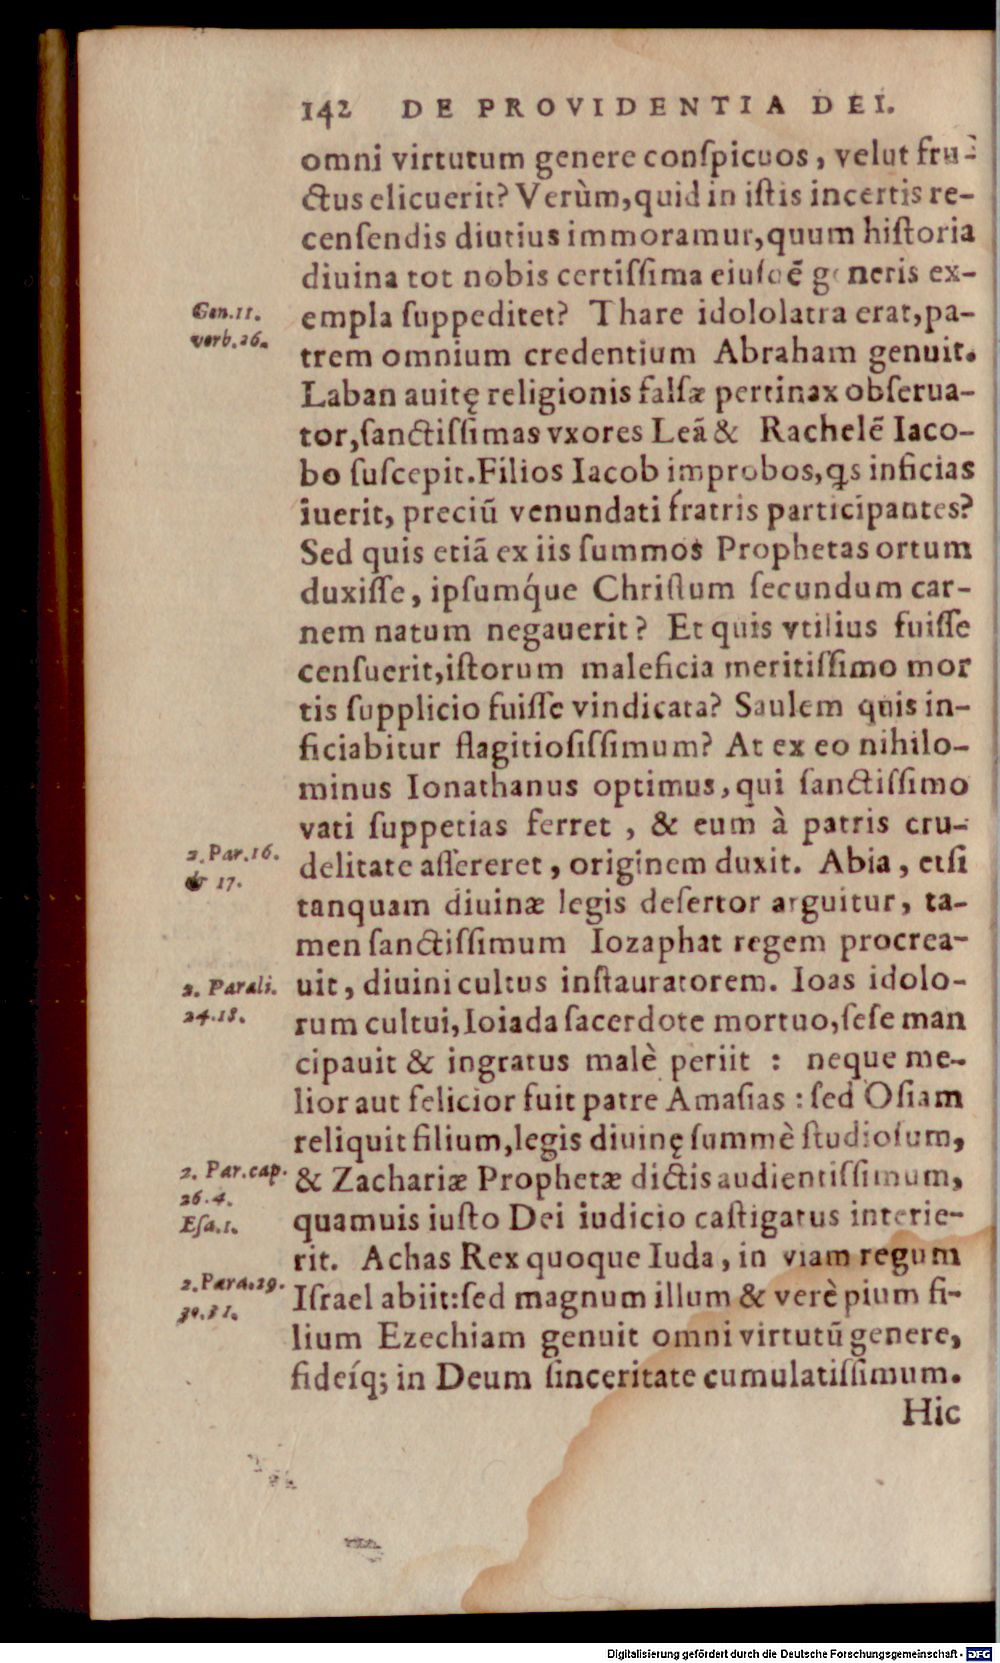 142 DE PROVIDENTIA DEI.
omni virtutum genere conſpicuos, velut fru-
ctus elicuerit? Verùm, quid in iſtis incertis re-
cenſendis diutius immoramur, quum hiſtoria
diuina tot nobis certiſſima eiuſdẽ generis ex-
Gen.11.
empla ſuppeditet? Thare idololatra erat, pa-
verb.26.
trem omnium credentium Abraham genuit.
Laban auitę religionis falſæ pertinax obſerua-
tor, ſanctiſſimas vxores Leã & Rachelẽ Iaco-
bo ſuſcepit. Filios Iacob improbos, qs inficias
iuerit, preciũ venundati fratris participantes?
Sed quis etiã ex iis ſummos Prophetas ortum
duxiſſe, ipſumq́ue Chriſtum ſecundum car-
nem natum negauerit? Et quis vtilius fuiſſe
cenſuerit, iſtorum maleficia meritiſſimo mor
tis ſupplicio fuiſſe vindicata? Saulem quis in-
ficiabitur flagitioſiſſimum? At ex eo nihilo-
minus Ionathanus optimus, qui ſanctiſſimo
vati ſuppetias ferret, & eum à patris cru-
2. Par.16.
delitate aſſereret, originem duxit. Abia, etſi
& 17.
tanquam diuinæ legis deſertor arguitur, ta-
men ſanctiſſimum Iozaphat regem procrea-
2. Parali.
uit, diuini cultus inſtauratorem. Ioas idolo-
24.18.
rum cultui, Ioiada ſacerdote mortuo, ſeſe man
cipauit & ingratus malè periit : neque me-
lior aut felicior fuit patre Amaſias : ſed Oſiam
reliquit filium, legis diuinę ſummè ſtudioſum,
2. Par.cap.
& Zachariæ Prophetæ dictis audientiſſimum,
26.4.
Eſa.1.
quamuis iuſto Dei iudicio caſtigatus interie-
rit. Achas Rex quoque Iuda, in viam regum
2.Para.29.
Iſrael abiit: ſed magnum illum & verè pium fi-
30.31.
lium Ezechiam genuit omni virtutũ genere,
fideíq; in Deum ſinceritate cumulatiſſimum.
Hic
Digitalisierung gefördert durch die Deutsche Forschungsgemeinschaft - DFG